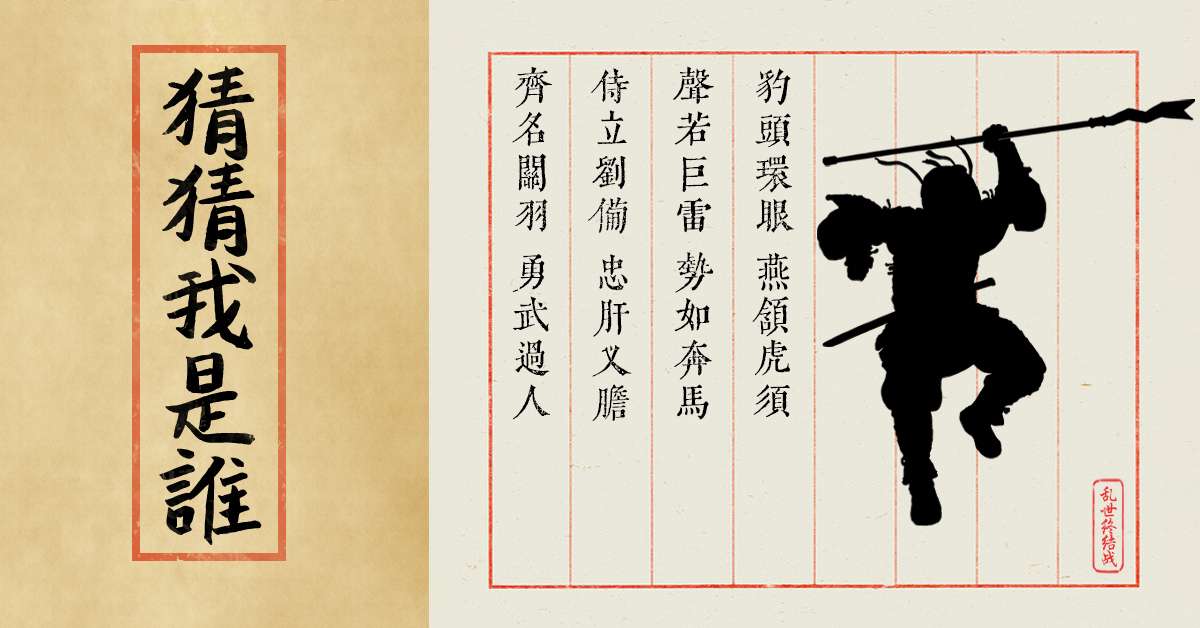 猜猜我是誰
豹頭環眼 燕頷虎須
聲若巨雷 勢如奔馬
侍立劉備 忠肝义膽
齊名關羽 勇武過人
乱世终结战